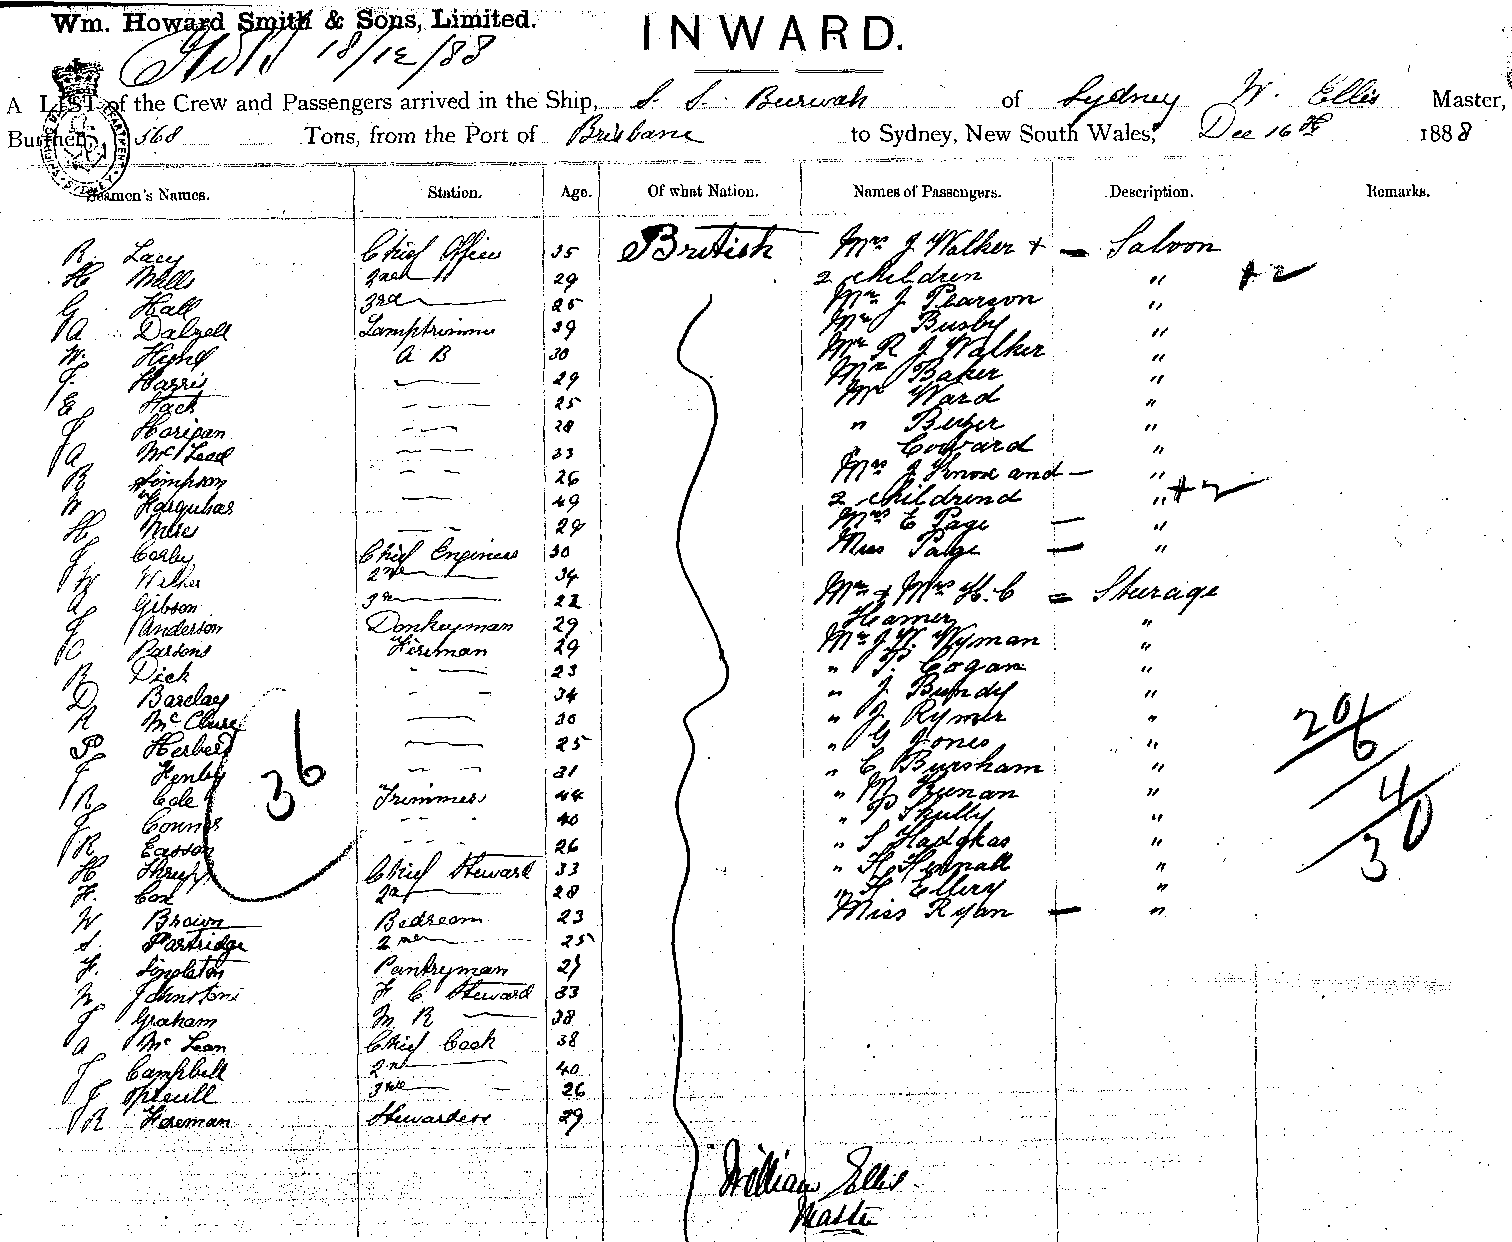 Wm. Howard Smith & Sons, Limited.
INWARD.
18/12/88
A LIST of the Crew and Passengers arrived in the Ship, S. S. Burwah of Sydney W. Ellis Master,
Burthen 568 Tons, from the Port of Brisbane to Sydney, New South Wales, Dec 16th 1888
Seamen's Names. Station. Age. Of what Nation. Names of Passengers. Description. Remarks.
R Lacy Chief Officer 35 British Mrs J Walker + – Saloon
H Mills 2nd " 29 2 children " +2
G Hall 3rd — 25 Mr J Pearson "
A Dalzell Lamptrimmer 39 Mr Busby "
W. A B 30 Mr R J Walker "
F. Harris — 29 Mr Baker "
E Hack — 25 Mr Ward "
J Horigan — 28 "
A McLeod — 33 " Coward "
R Simpson — 26 Mrs J Knox and – "
W Farquhar — 49 2 childrend " +2
H — 29 Mrs E Page – "
J Corley Chief Engineer 30 Miss Page – "
W 2nd — 34 Mr & Mrs H. C – Sturage
A Gibson 3rd — 22 Hamer "
J Anderson Donkeyman 29 Mr J. W. Wyman "
C Parsons Fireman 29 " P. Cogan "
R Dick — 23 " J Bundy "
D Barclay — 34 " J Rymer "
R McClure — 30 " G Jones "
P Herbert — 25 " C Bursham "
F Henley — 31 " Kunan "
R Cole Trimmer 44 " P Skully "
J Connor — 40 " S Hadgkas "
R Easson — 26 " H "
H Thrupp Chief Steward 33 " H Ellery "
F. Cox 2nd — 28 Miss Ryan – "
W Brown Bedroom 23
S. Partridge 2nd — 25
F. Singleton Pantryman 27
W Johnstone F C Steward 33
J Graham M R — 38
A McLean Chief Cook 38
J Campbell 2nd — 40
J Spreull 3rd — 26
R Foreman Stewardess 29
36
20/6
4
30
William Ellis
Master